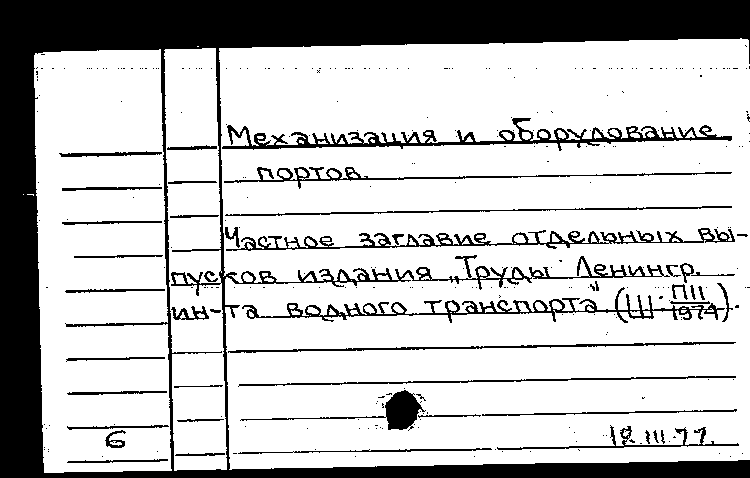 Механизация и оборудование
портов.
Частное заглавие отдельных вы-
пусков издания „Труды Ленингр.
ин-та водного транспорта“ (Ш: П111/1974).
6 18.III.77.